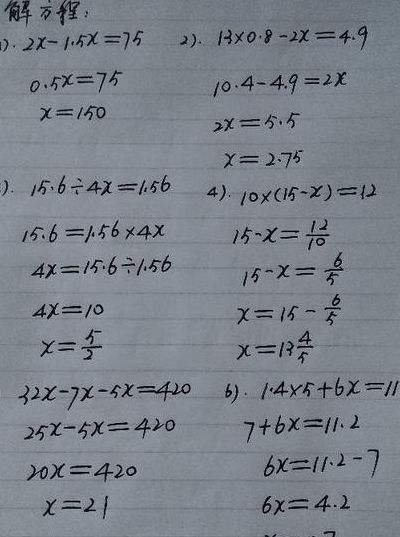 解方程:
). 2x-1.5x=75
0.5x=75
x=150
2). 13×0.8-2x=4.9
10.4-4.9=2x
2x=5.5
x=2.75
). 15.6÷4x=1.56
15.6=1.56×4x
4x=15.6÷1.56
4x=10
x=5/2
4). 10×(15-x)=12
15-x=12/10
15-x=6/5
x=15-6/5
x=13 4/5
32x-7x-5x=420
25x-5x=420
20x=420
x=21
6). 1.4×5+6x=11
7+6x=11.2
6x=11.2-7
6x=4.2